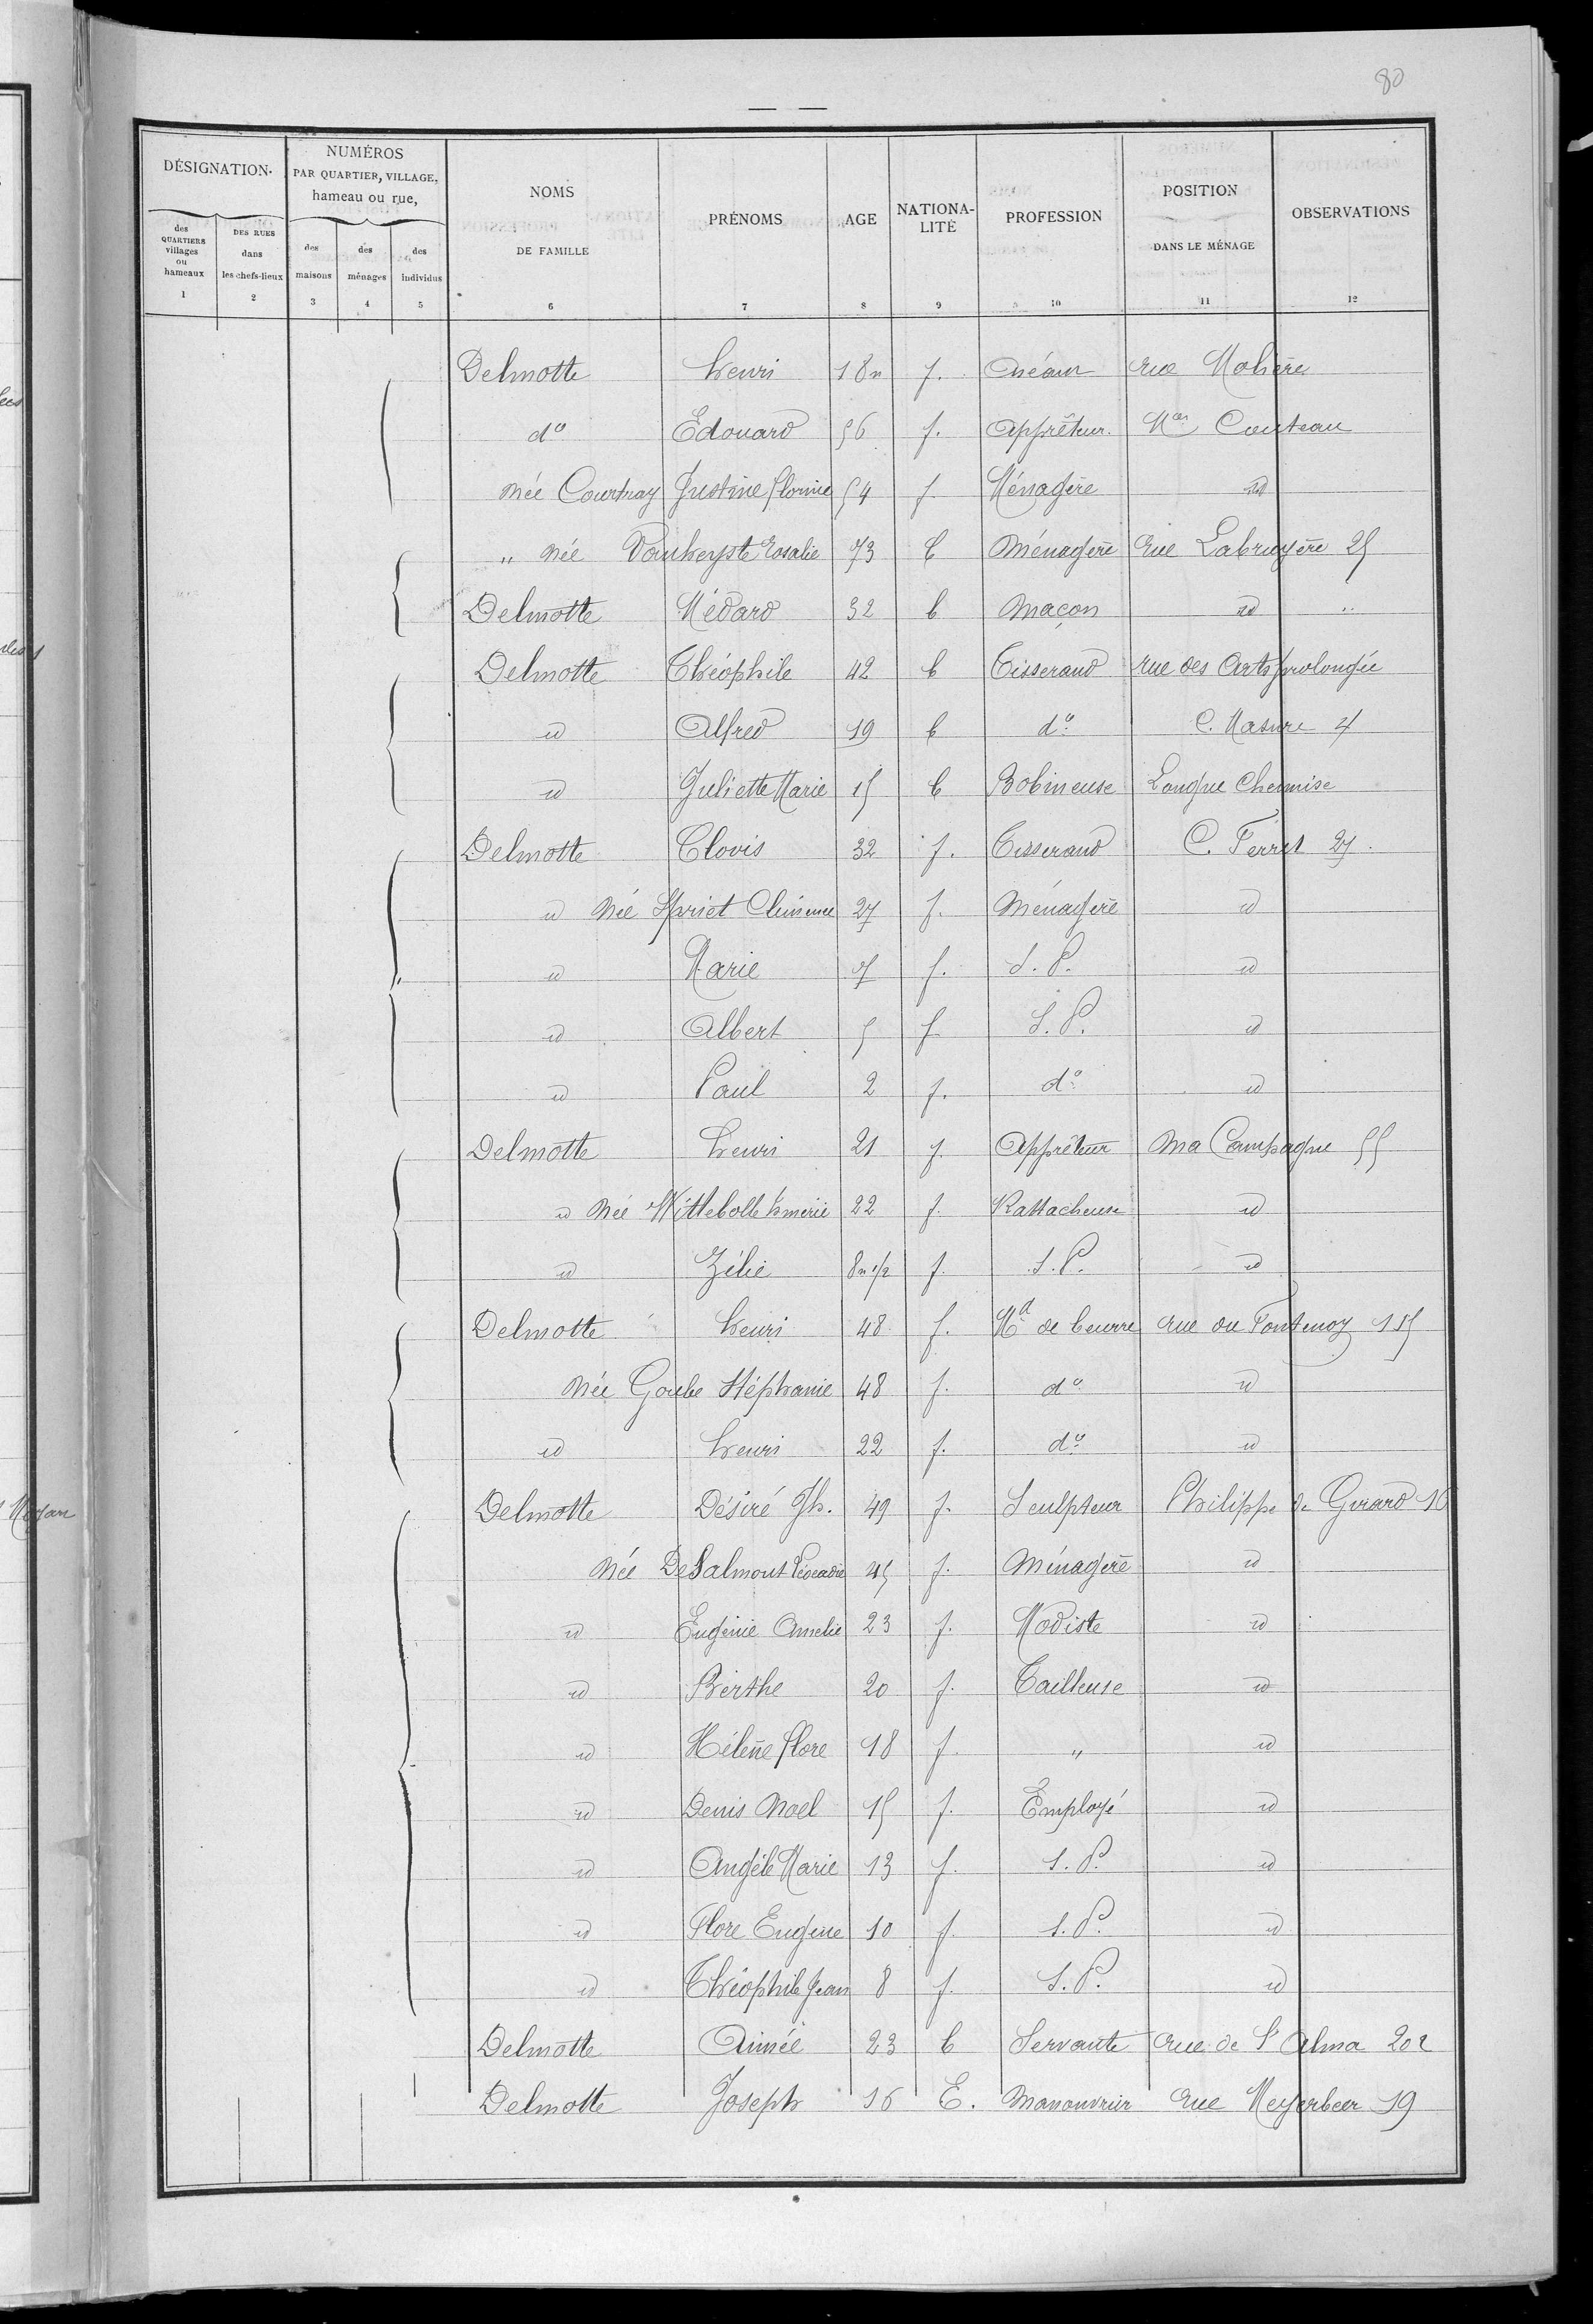 80
DÉSIGNATION.
NUMÉROS
PAR QUARTIER, VILLAGE,
hameau ou rue,
des QUARTIERS villages ou hameaux
DES RUES dans les chefs-lieux
des maisons
des ménages
des individus
NOMS DE FAMILLE
PRÉNOMS
AGE
NATIONA-LITÉ
PROFESSION
POSITION DANS LE MÉNAGE
OBSERVATIONS
1 2 3 4 5 6 7 8 9 10 11 12
Delmotte Henri 18 f. Néant rue Molière
do Edouard 56 f. Apprêteur Mon Couteau
née Courtray Justine Florine 54 f. Ménagère id
" née Vankeyste Rosalie 73 b Ménagère rue Labruyère 25
Delmotte Médard 32 b Maçon id "
Delmotte Théophile 42 b Tisserand rue des Arts prolongée
id Alfred 19 b do C. Masure 4
id Juliette Marie 15 b Bobineuse Longue Chemise
Delmotte Clovis 32 f. Tisserand C. Ferret 27
id née Spriet Clémence 27 f. Ménagère id
id Marie 7 f. S. P. id
id Albert 5 f S. P. id
id Paul 2 f. do id
Delmotte Henri 21 f. Apprêteur Ma Campagne 55
id née Wittebolle 22 f. Rattacheuse id
id Zélie 8m 1/2 f. S. P. id
Delmotte Henri 48 f. Md de beurre rue du Fontenoy 115
née Goube Stéphanie 48 f. do id
id Henri 22 f. do id
Delmotte Désiré Jh. 49 f. Sculpteur Philippe de Girard 16
née DeSalmont Léocadie 45 f. Ménagère id
id Eugénie Amelie 23 f. Modiste id
id Berthe 20 f. Tailleuse id
id Hélène Flore 18 f. " id
id Denis Noel 15 f. Employé id
id Angèle Marie 13 f. S. P. id
id Flore Eugène 10 f. S. P. id
id Théophile Jean 8 f. S. P. id
Delmotte Aimée 23 b Servante rue de l'Alma 202
Delmotte Joseph 16 E. Manouvrier rue Meyerbeer 19